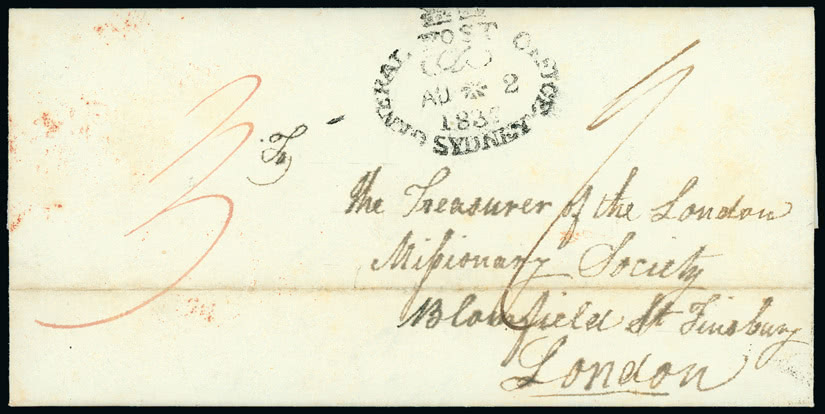 GENERAL POST OFFICE SYDNEY
AU 2
183
3
The Treasurer of the London
Mifsionary Society
Blomfield St Finsbury
London